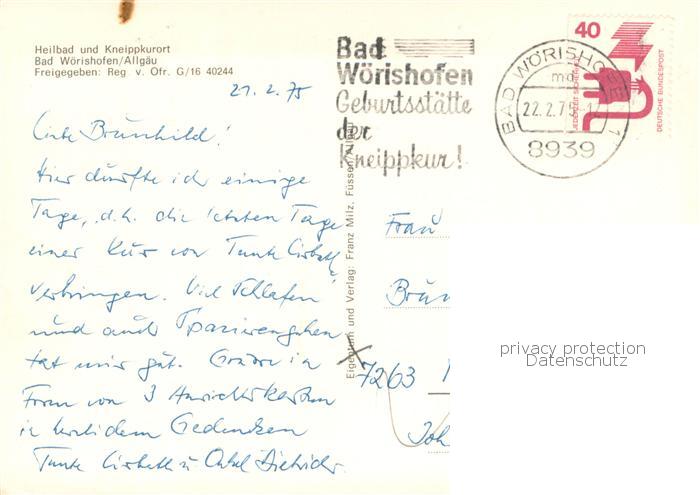 Heilbad und Kneippkurort
Bad Wörishofen/Allgäu
Freigegeben: Reg v. Ofr. G/16 40244
21.2.75
Liebe Brünhild!
Hier dürfte ich einige
Tage, d.h. die letzten Tage
einer Kur von Tante Lisbeth
verbringen. Viel Schlafen
und auch Spazierengehen
tat mir gut. in
Form von 3 Ansichtskarten
in Gedenken
Tante Lisbeth u. Onkel Dietrich.
Eigentum und Verlag: Franz Milz, Füssen/Allgäu
Bad
Wörishofen
Geburtsstätte
der
Kneippkur!
BAD WÖRISHOFEN 1
md
22.2.75
8939
40
JEDERZEIT SICHERHEIT
DEUTSCHE BUNDESPOST
Frau
Brün
7263
Joh
privacy protection
Datenschutz